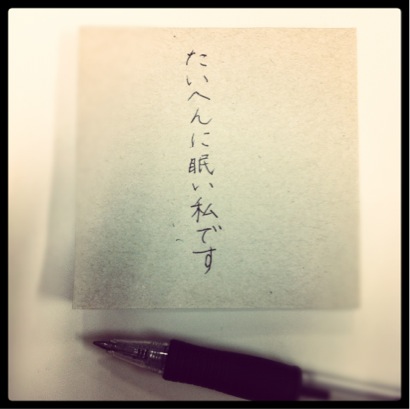 たいへんに眠い私です